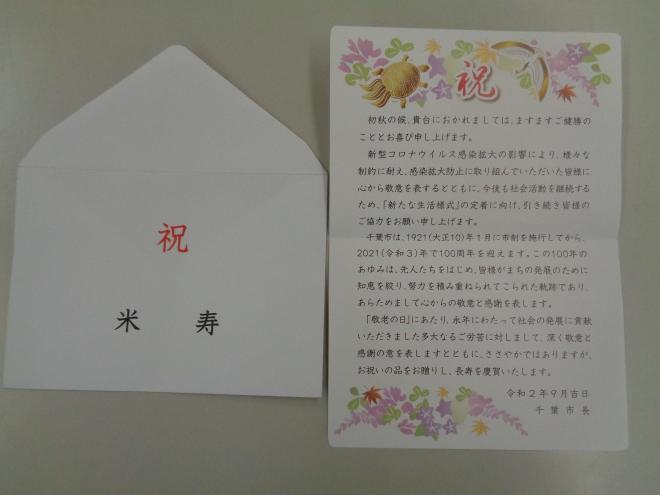 祝
米 寿
祝
初秋の候、貴台におかれましては、ますますご健勝の
こととお喜び申し上げます。
新型コロナウイルス感染拡大の影響により、様々な
制約に耐え、感染拡大防止に取り組んでいただいた皆様に
心から敬意を表するとともに、今後も社会活動を継続する
ため、「新たな生活様式」の定着に向け、引き続き皆様の
ご協力をお願い申し上げます。
千葉市は、1921(大正10)年1月に市制を施行してから、
2021(令和3)年で100周年を迎えます。この100年の
あゆみは、先人たちをはじめ、皆様がまちの発展のために
知恵を絞り、努力を積み重ねられてこられた軌跡であり、
あらためまして心からの敬意と感謝を表します。
「敬老の日」にあたり、永年にわたって社会の発展に貢献
いただきました多大なるご労苦に対しまして、深く敬意と
感謝の意を表しますとともに、ささやかではありますが、
お祝いの品をお贈りし、長寿を慶賀いたします。
令和2年9月吉日
千 葉 市 長